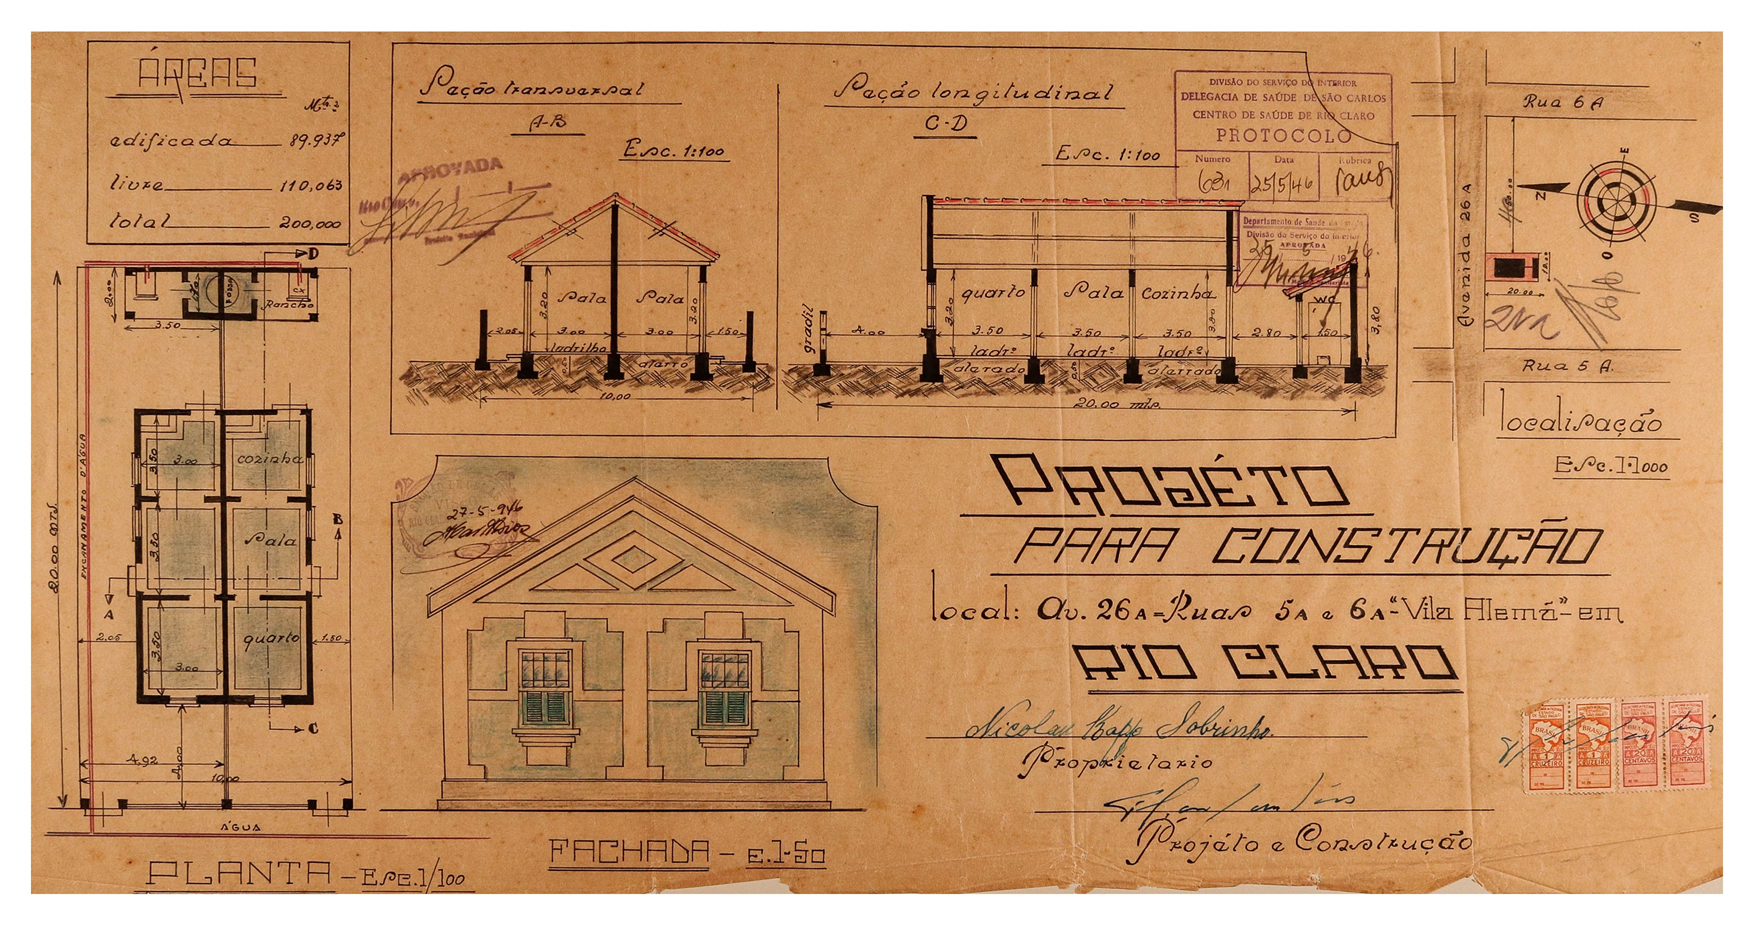 ÁREAS
Mts.2
edificada 89.937
livre 110,063
total 200,000
Seção transversal
A-B
Esc. 1:100
APROVADA
Rio Claro,
Sala
Sala
3.20
3.20
2.05
3.00
3.00
1.50
ladrilho
aterro
0.50
10.00
Seção longitudinal
C-D
Esc. 1:100
gradil
quarto
Sala
cozinha
WC
3.20
3.20
3,80
4.00
3.50
3.50
3.50
2.80
1.50
ladrº
ladrº
ladrº
aterrado
0.50
aterrado
20.00 mts.
DIVISÃO DO SERVIÇO DO INTERIOR
DELEGACIA DE SAÚDE DE SÃO CARLOS
CENTRO DE SAÚDE DE RIO CLARO
PROTOCOLO
Numero
Data
Rubrica
631
25/5/46
Departamento de Saude do Estado
Divisão do Serviço do Interior
APROVADA
25 5 1946.
Rua 6 A
Avenida 26 A
E
N
S
O
20.00
10.00
Rua 5 A.
localisação
Esc. 1:1000
D
2.00
POSSO
Rancho
3.50
20.00 MTS.
ENCANAMENTO D'ÁGUA
3.50
3.00
cozinha
3.50
Sala
B
A
3.50
quarto
2.05
1.50
3.00
C
4.92
4.00
10.00
ÁGUA
PLANTA - Esc. 1/100
27-5-946
FACHADA - E. 1-50
PROJÉTO
PARA CONSTRUÇÃO
local: Av. 26A = Ruas 5A e 6A - "Vila Alemã" - em
RIO CLARO
Nicolau Kapp Sobrinho.
Proprietario
Projéto e Construção
BRASIL
1
CRUZEIRO
BRASIL
1
CRUZEIRO
20
CENTAVOS
20
CENTAVOS